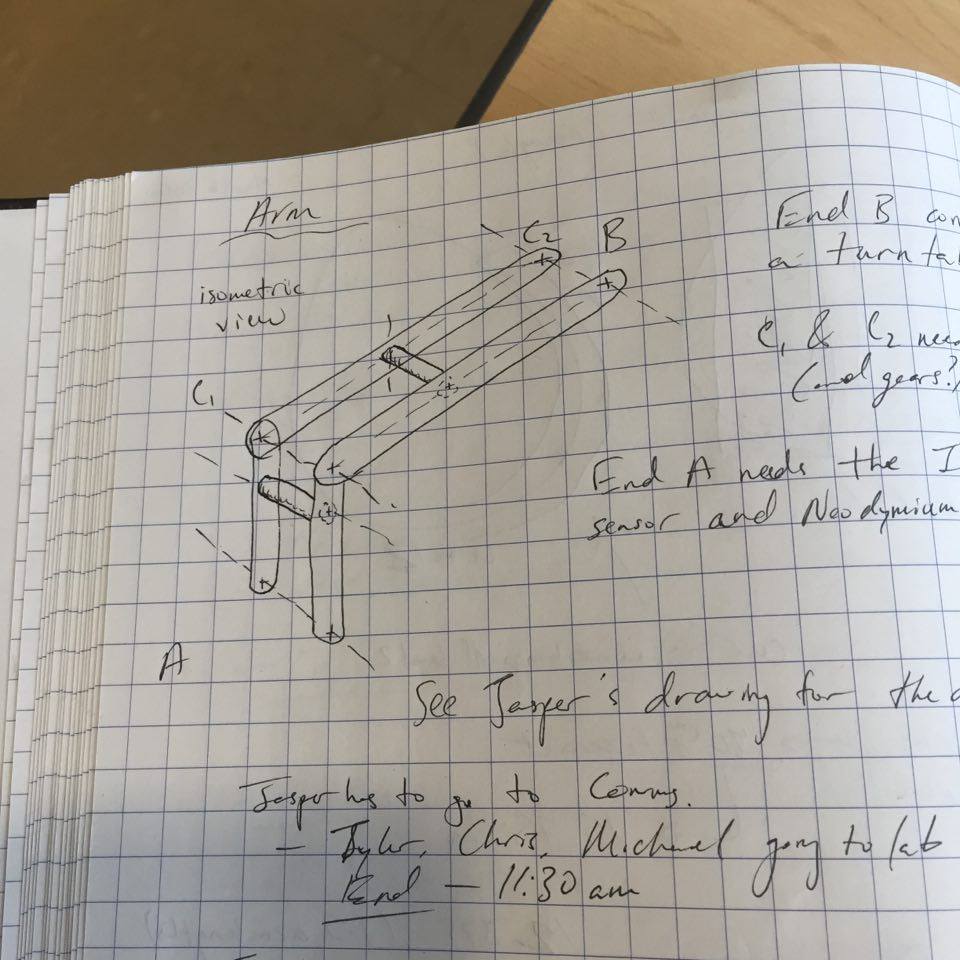 Arm
isometric
view
C₂
B
C₁
A
End B con
a turn ta
C₁ & C₂ nee
(and gears?)
End A needs the I
sensor and Neodymium
See Jasper's drawing for the
Jasper has to go to Comms.
- Tyler, Chris, Michael going to lab
End - 11:30 am